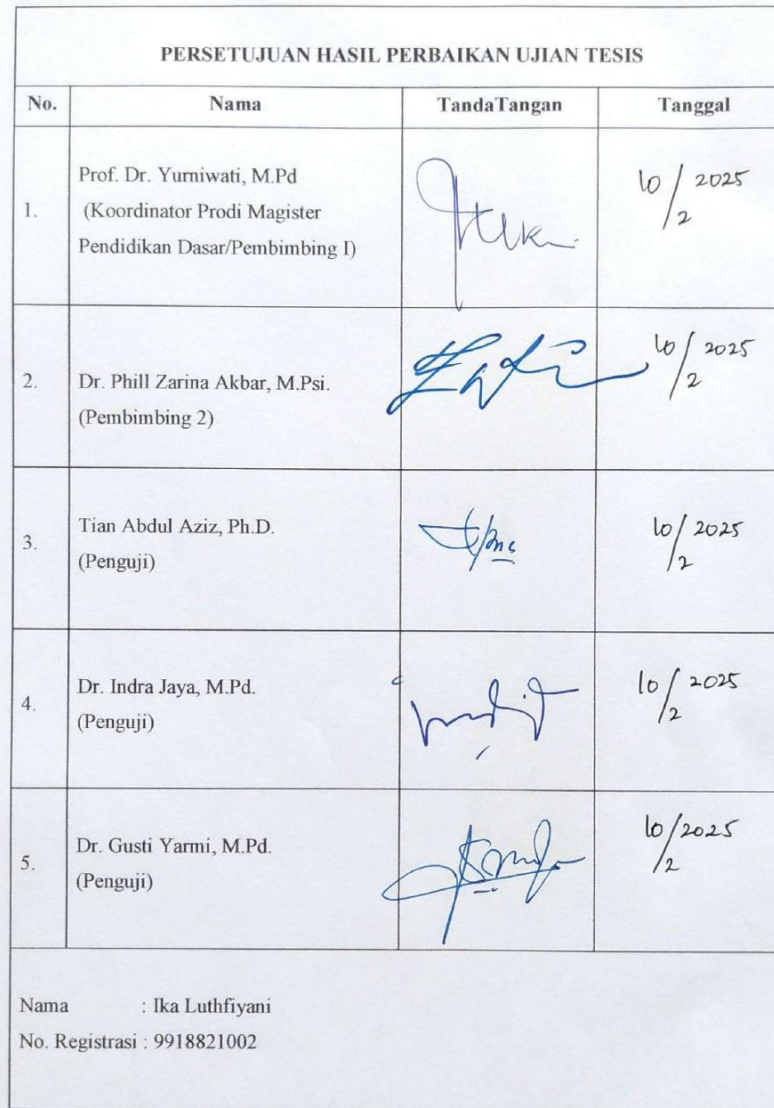 PERSETUJUAN HASIL PERBAIKAN UJIAN TESIS
No. Nama TandaTangan Tanggal
1. Prof. Dr. Yurniwati, M.Pd
(Koordinator Prodi Magister
Pendidikan Dasar/Pembimbing I)
10/2 2025
2. Dr. Phill Zarina Akbar, M.Psi.
(Pembimbing 2)
10/2 2025
3. Tian Abdul Aziz, Ph.D.
(Penguji)
10/2 2025
4. Dr. Indra Jaya, M.Pd.
(Penguji)
10/2 2025
5. Dr. Gusti Yarmi, M.Pd.
(Penguji)
10/2 2025
Nama : Ika Luthfiyani
No. Registrasi : 9918821002